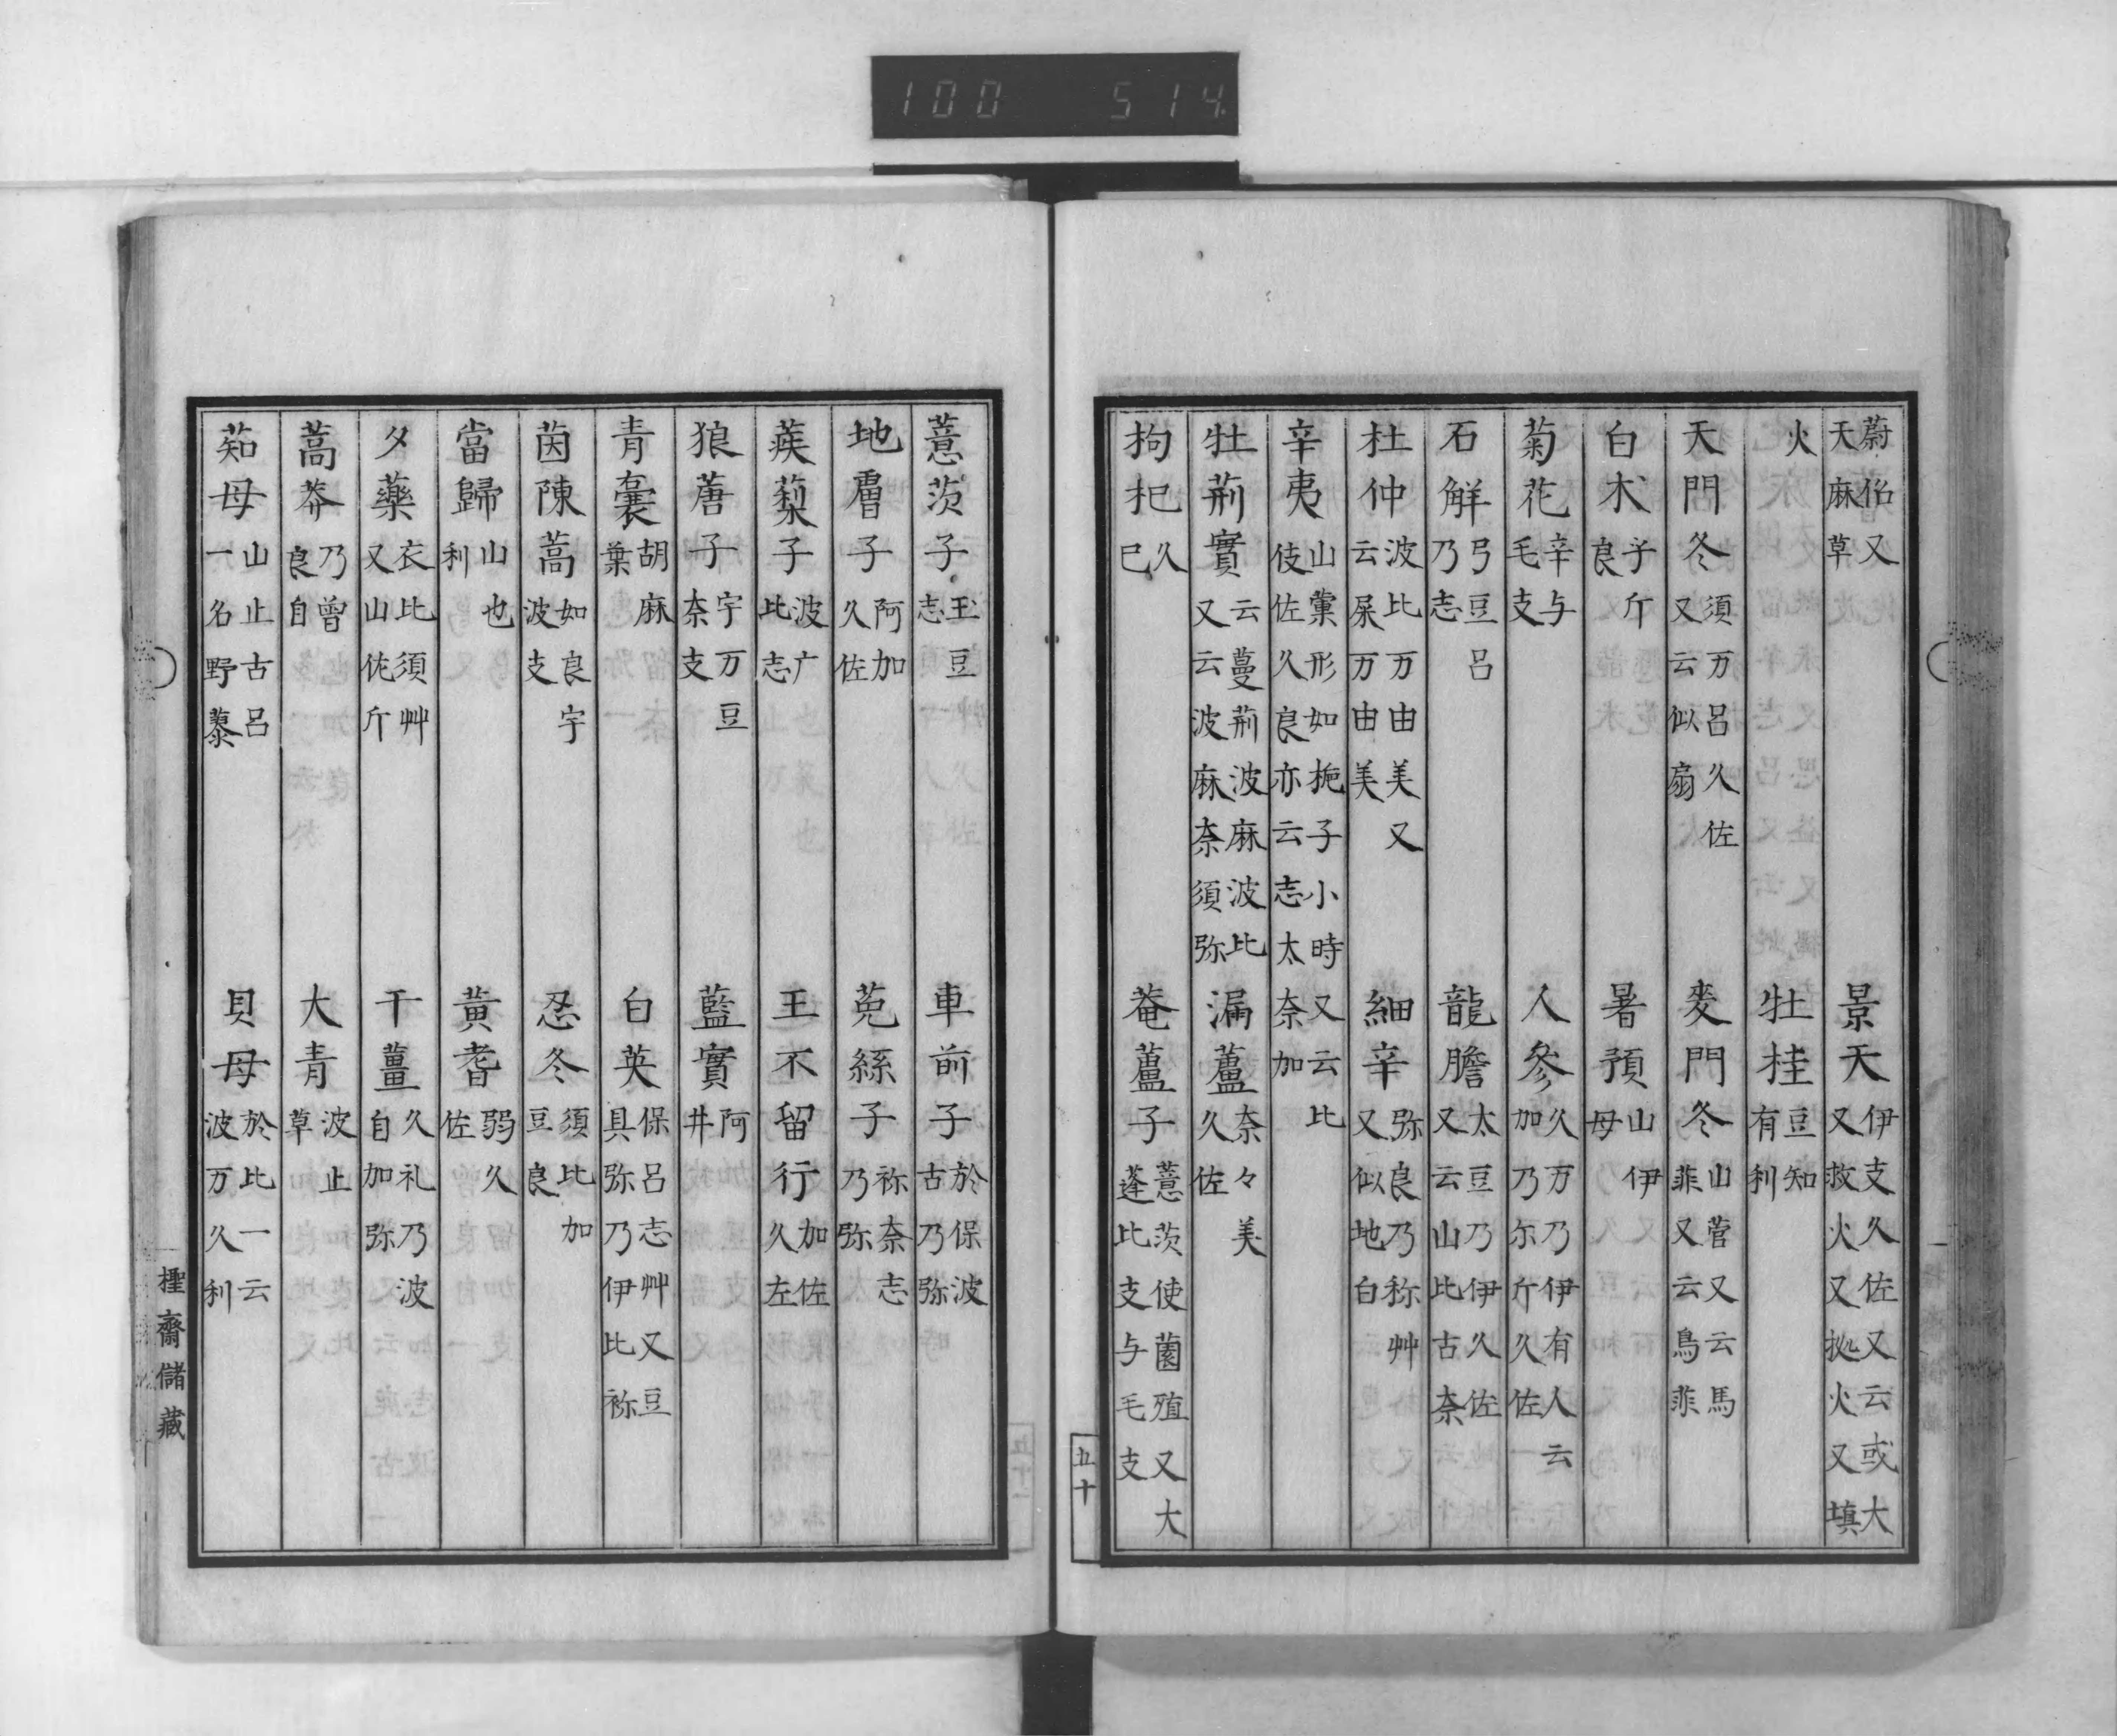 100 514
蔚伯又天麻草
景天伊支久佐又云或大又救火又拋火又填
火
牡桂豆知有利
天門冬須万呂久佐又云似扇
麥門冬山菅又云馬韮又云烏韮
白朮乎斤良
暑預山伊母
菊花辛与毛支
人參久万乃伊有人云加乃尓斤久佐一
石斛弓豆呂乃志
龍膽太豆乃伊久佐又云山比古奈
杜仲波比万由美又云屎万由美
細辛弥良乃祢艸又似地白
辛夷山菓形如梔子小時又云比伎佐久良亦云志太奈加
牡荊實云蔓荊波麻波比又云波麻奈須弥
漏蘆奈々美久佐
拘杞久已
菴蘆子薏茨使薗殖又大蓬比支与毛支
五十
薏茨子玉豆志
車前子於保波古乃弥
地膚子阿加久佐
菟絲子祢奈志乃弥
蒺蔾子波广比志
王不留行加佐久左
狼蓎子宇万豆奈支
藍實阿井
青蘘胡麻葉
白英保呂志艸又豆具弥乃伊比祢
茵陳蒿如良宇波支
忍冬須比加豆良
當歸山也利
黃耆弱久佐
夕藥衣比須艸又山佐斤
干薑久礼乃波自加弥
蒿莽乃曾良自
大青波止草
茋母山止古呂一名野蓼
貝母於比一云波万久利
檉齋儲藏